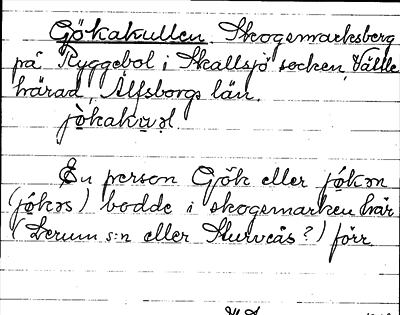 Gökakullen. Skogsmarksberg
på Ryggebol i Skallsjö socken, Vättle
härad, Älfsborgs län.
jö̀kakụ̈̀əl
En person Gök eller jö́kən
(jö́kəs) bodde i skogsmarken här
(Lerum s:n eller Sturveås?) förr